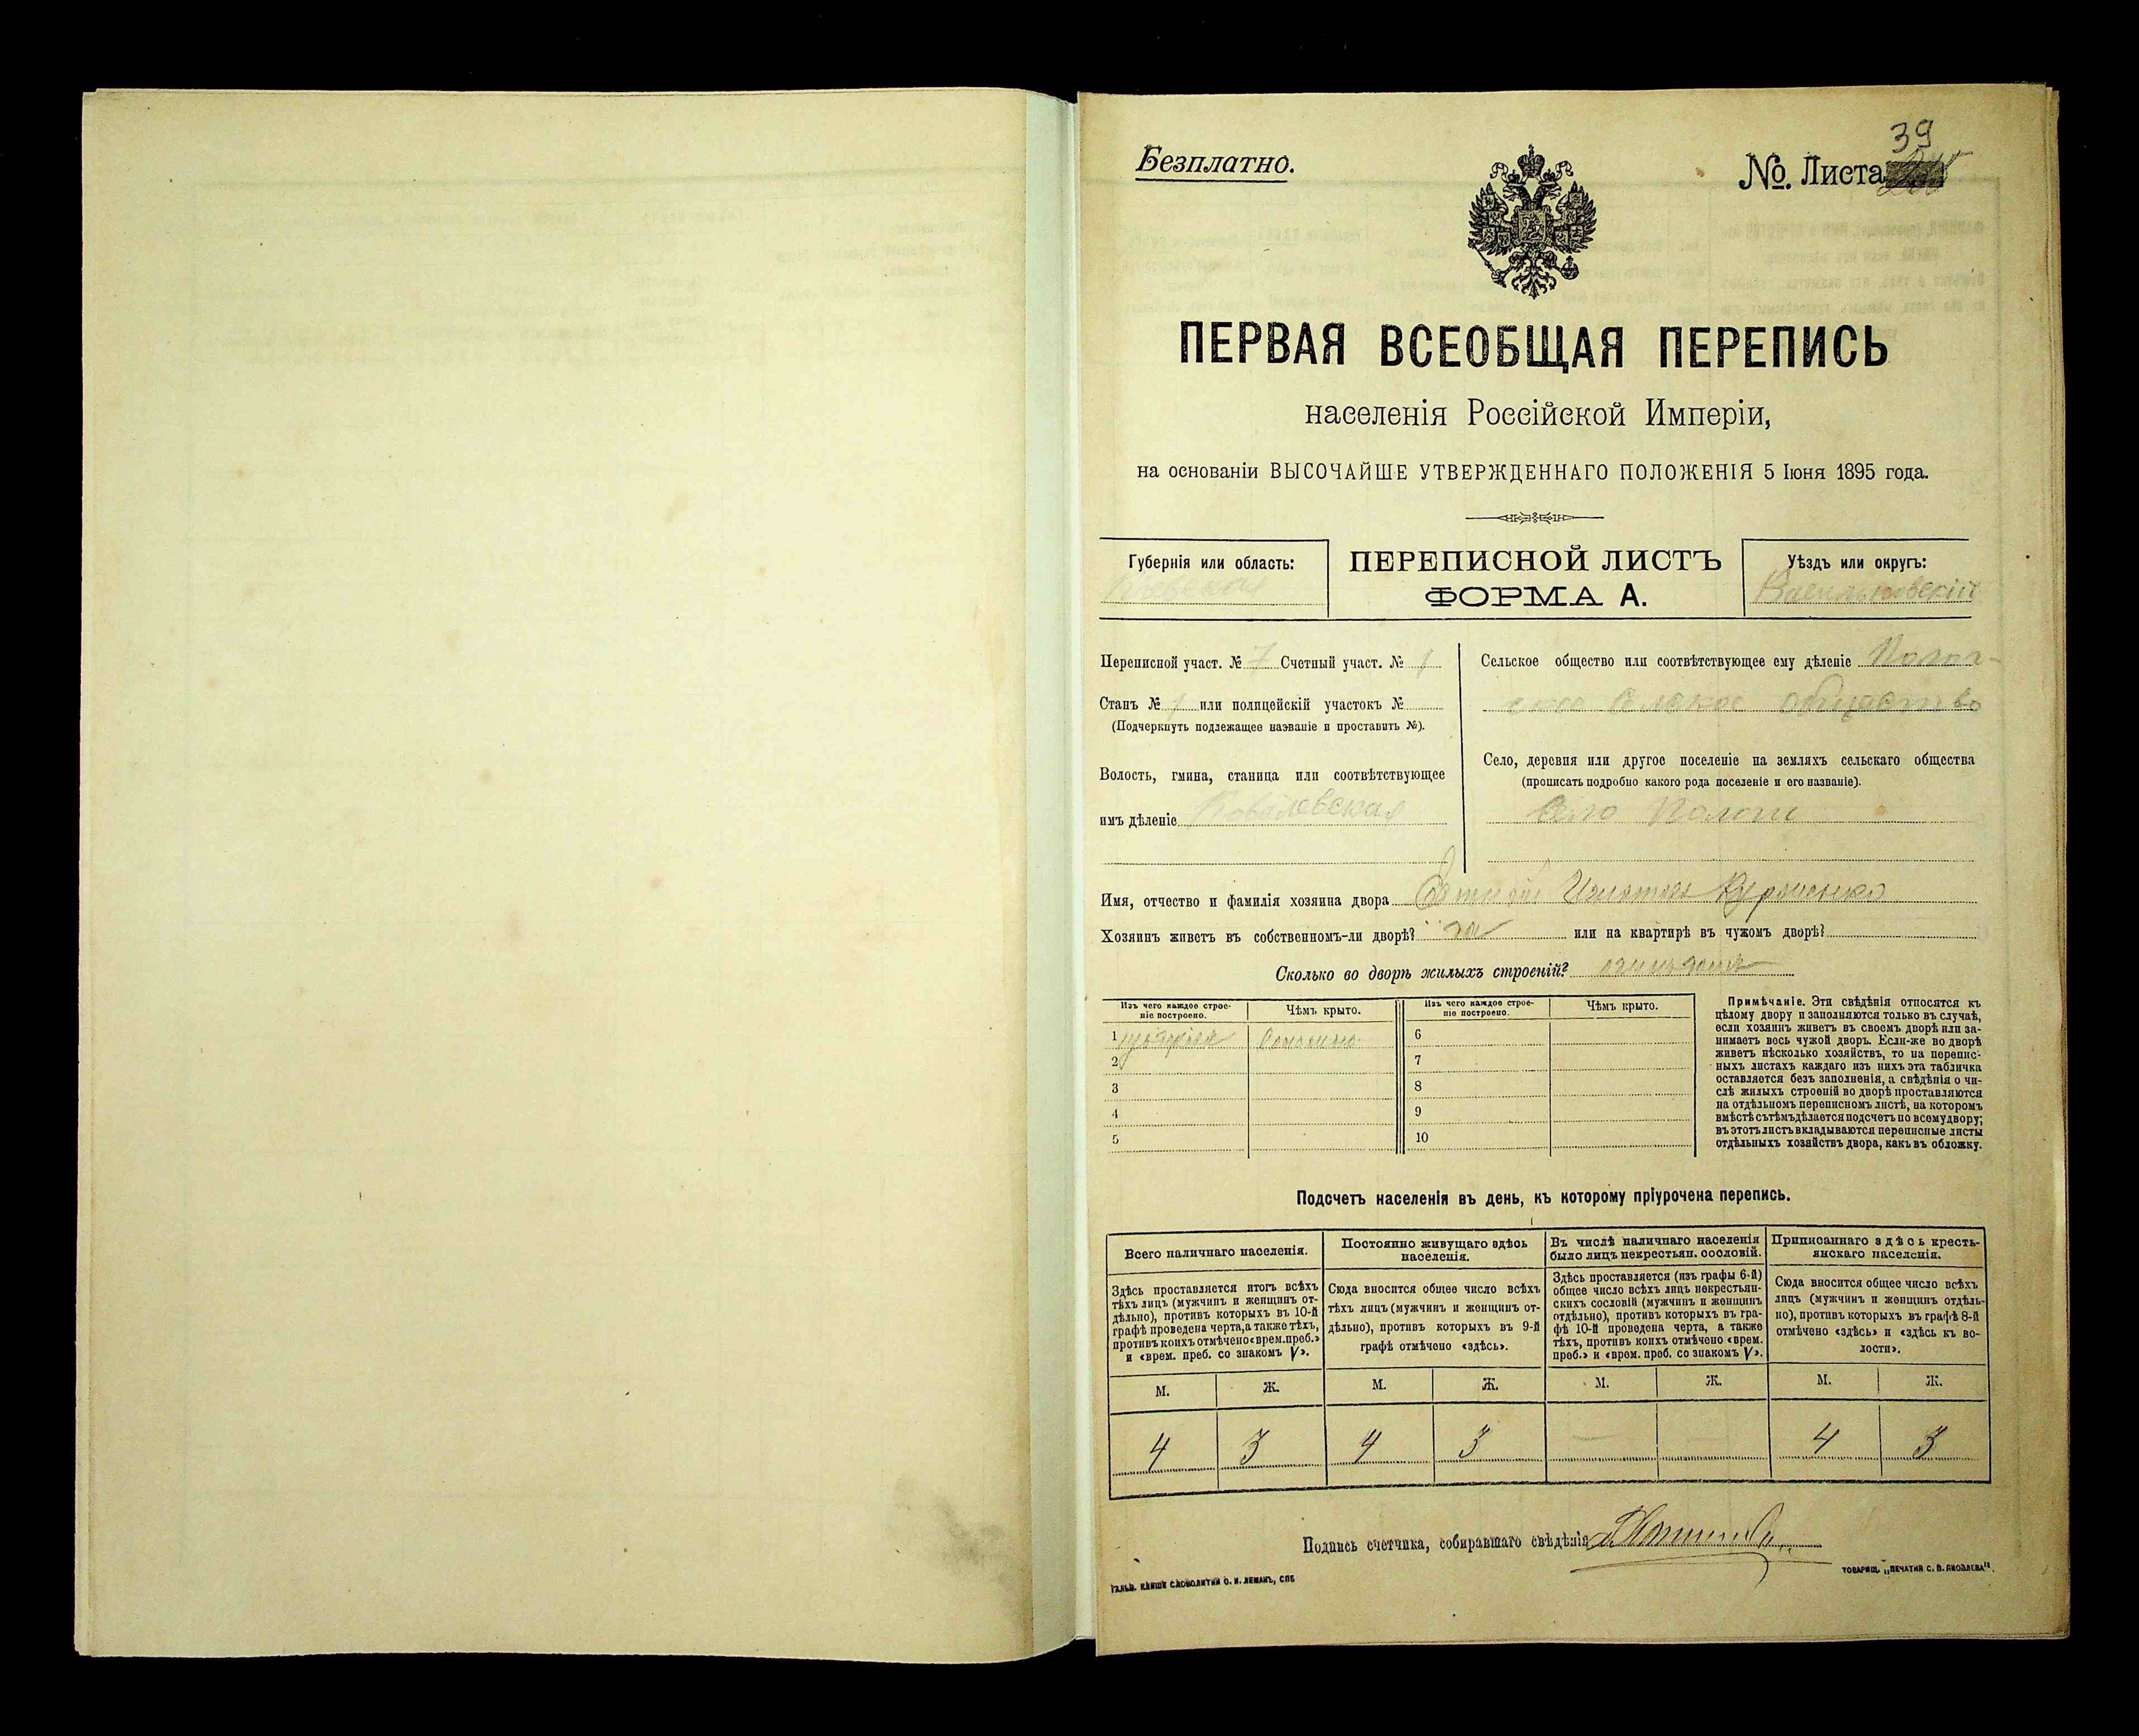 Безплатно.
39
№. Листа
ПЕРВАЯ ВСЕОБЩАЯ ПЕРЕПИСЬ
населенія Россійской Имперіи,
на основаніи ВЫСОЧАЙШЕ УТВЕРЖДЕННАГО ПОЛОЖЕНІЯ 5 Іюня 1895 года.
Губернія или область:
Кіевская
ПЕРЕПИСНОЙ ЛИСТЪ
ФОРМА А.
Уѣздъ или округъ:
Васильковскій
Переписной участ. № 7 Счетный участ. № 1
Станъ № 1 или полицейскій участокъ №
(Подчеркнуть подлежащее названіе и проставить №).
Волость, гмина, станица или соотвѣтствующее
имъ дѣленіе Ковалевская
Сельское общество или соотвѣтствующее ему дѣленіе Полог-
ское сельское общество
Село, деревня или другое поселеніе на земляхъ сельскаго общества
(прописать подробно какого рода поселеніе и его названіе).
Село Пологи
Имя, отчество и фамилія хозяина двора
Хозяинъ живетъ въ собственномъ-ли дворѣ? или на квартирѣ въ чужомъ дворѣ?
Сколько во дворѣ жилыхъ строеній?
Изъ чего каждое строе-
ніе построено.
Чѣмъ крыто.
Изъ чего каждое строе-
ніе построено.
Чѣмъ крыто.
1 Соломою
2
3
4
5
6
7
8
9
10
Примѣчаніе. Эти свѣдѣнія относятся къ
цѣлому двору и заполняются только въ случаѣ,
если хозяинъ живетъ въ своемъ дворѣ или за-
нимаетъ весь чужой дворъ. Если-же во дворѣ
живетъ нѣсколько хозяйствъ, то на перепис-
ныхъ листахъ каждаго изъ нихъ эта табличка
оставляется безъ заполненія, а свѣдѣнія о чи-
слѣ жилыхъ строеній во дворѣ проставляются
на отдѣльномъ переписномъ листѣ, на которомъ
вмѣстѣ съ тѣмъ дѣлается подсчетъ по всему двору;
въ этотъ листъ вкладываются переписные листы
отдѣльныхъ хозяйствъ двора, какъ въ обложку.
Подсчетъ населенія въ день, къ которому пріурочена перепись.
Всего наличнаго населенія.
Постоянно живущаго здѣсь
населенія.
Въ числѣ наличнаго населенія
было лицъ некрестьян. сословій.
Приписаннаго здѣсь кресть-
янскаго населенія.
Здѣсь проставляется итогъ всѣхъ
тѣхъ лицъ (мужчинъ и женщинъ от-
дѣльно), противъ которыхъ въ 10-й
графѣ проведена черта, а также тѣхъ,
противъ коихъ отмѣчено «врем. преб.»
и «врем. преб. со знакомъ V».
Сюда вносится общее число всѣхъ
тѣхъ лицъ (мужчинъ и женщинъ от-
дѣльно), противъ которыхъ въ 9-й
графѣ отмѣчено «здѣсь».
Здѣсь проставляется (изъ графы 6-й)
общее число всѣхъ лицъ некрестьян-
скихъ сословій (мужчинъ и женщинъ
отдѣльно), противъ которыхъ въ гра-
фѣ 10-й проведена черта, а также
тѣхъ, противъ коихъ отмѣчено «врем.
преб.» и «врем. преб. со знакомъ V».
Сюда вносится общее число всѣхъ
лицъ (мужчинъ и женщинъ отдѣль-
но), противъ которыхъ въ графѣ 8-й
отмѣчено «здѣсь» и «здѣсь къ во-
лости».
М. Ж. М. Ж. М. Ж. М. Ж.
4 3 4 3 — — 4 3
Подпись счетчика, собиравшаго свѣдѣнія
ГАЛЬВ. КЛИШЕ СЛОВОЛИТНИ О. И. ЛЕМАНЪ, СПБ
ТОВАРИЩ. „ПЕЧАТНЯ С. П. ЯКОВЛЕВА".